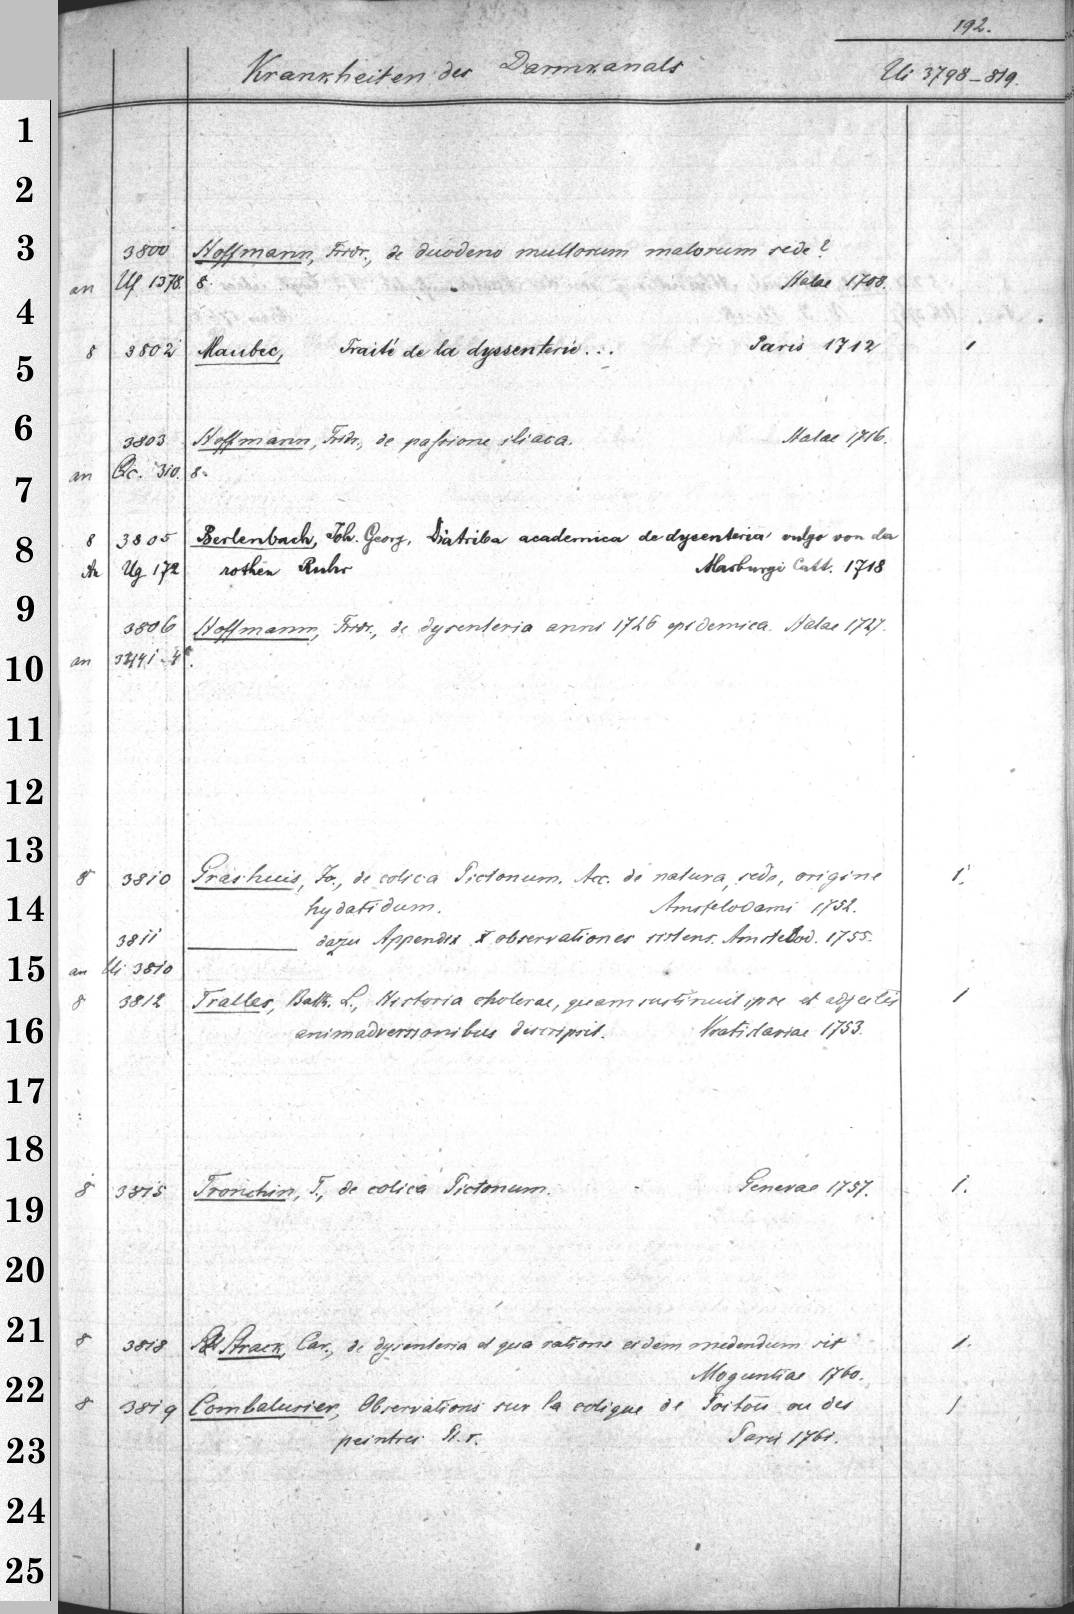 192.
Krankheiten des Darmkanals Ui 3798-819.
1
2
3
3800 Hoffmann, Fridr., de duodeno multorum malorum sede?
an Uf 1378. 8. Halae 1708.
4
8 3802 Maubec, Traité de la dyssenterie... Paris 1712 1
5
6
3803 Hoffmann, Fridr., de passione iliaca. Halae 1716.
an Qc. 310. 8.
7
8 3805 Berlenbach, Joh. Georg, Diatriba academica de dysenteria vulgo von der
8
An Ug 172 rothen Ruhr Marburgi Catt. 1718
9
3806 Hoffmann, Fridr., de dysenteria anni 1726 epidemica. Halae 1727.
an
10
11
12
13
8 3810 Grashuis, Jo., de colica Pictonum. Acc. de natura, sede, origine 1.
14
hydatidum. Amstelodami 1752.
3811 dazu Appendix X observationes sistens. Amstelod. 1755.
15
an Ui 3810
8 3812 Tralles, Balth. L., Historia cholerae, quam sustinuit ipse et adjectis 1
16
animadversionibus descripsit. Vratislaviae 1753.
17
18
8 3815 Tronchin, T., de colica Pictonum. Genevae 1757. 1.
19
20
21
8 3818 Strack, Car., de dysenteria et qua ratione eidem medendum sit 1.
Moguntiae 1760.
22
8 3819 Combalusier, Observations sur la colique de Poitou ou des 1
23
peintres Paris 1761.
24
25